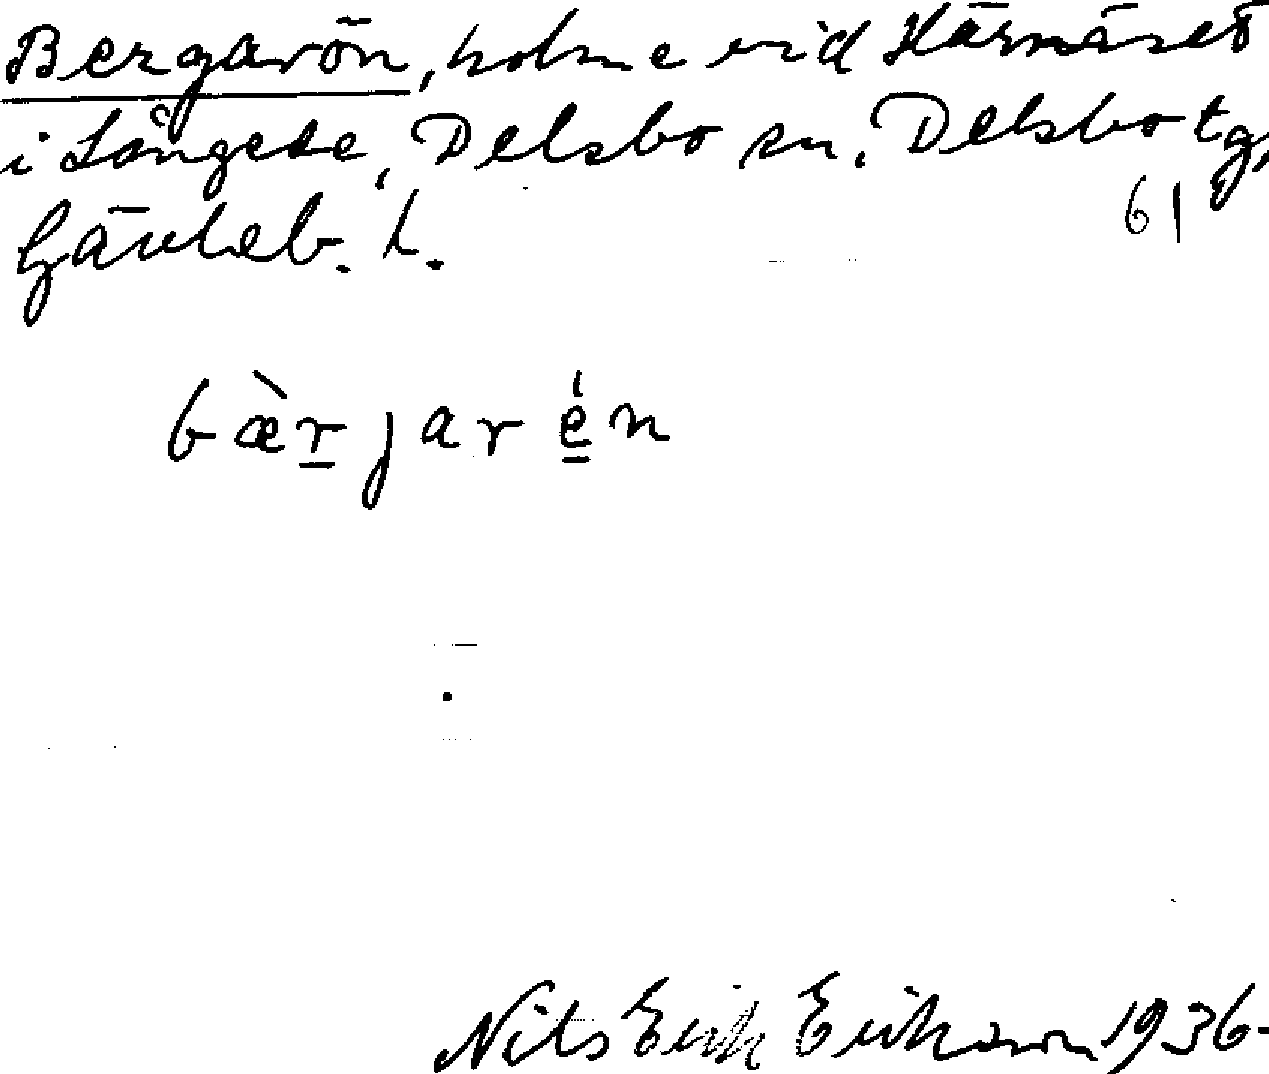 Bergarön, holme vid Kärnäset
i Långede, Delsbo sn. Delsbo tg,
61
Gävleb. l.
bæ̀r̲jarė̲n
Nils Erik Erikson 1936.